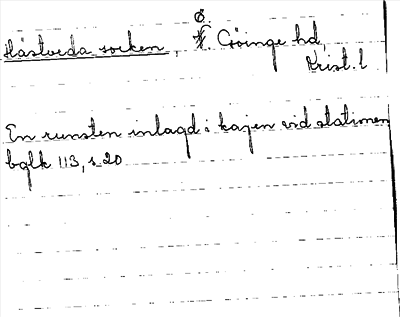 Hästveda socken, Ö. Göinge hd,
Krist. l
En runsten inlagd i kajen vid stationen
bglk 113, s 20